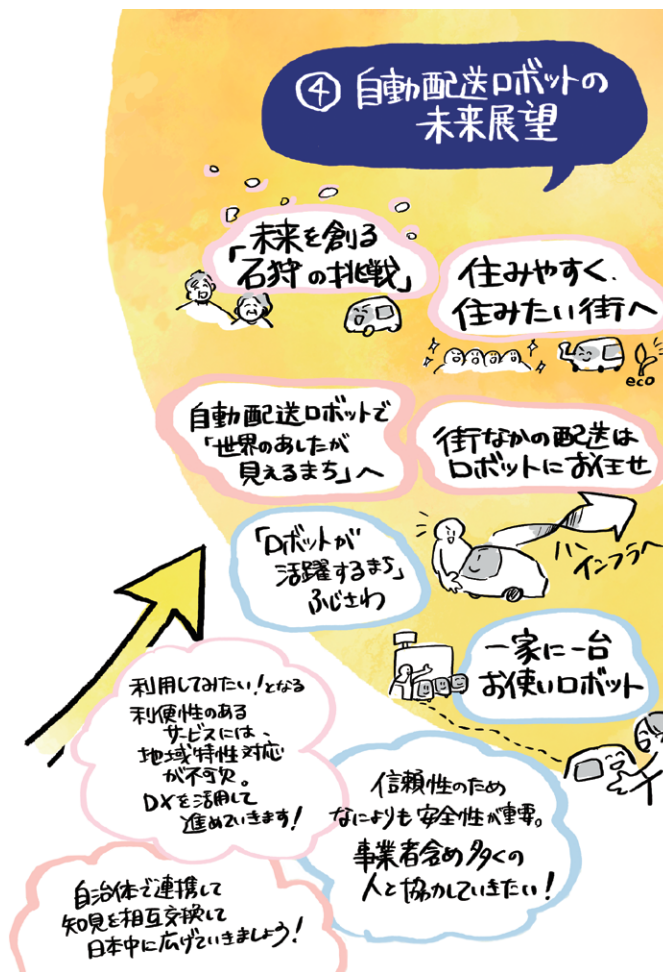 ④ 自動配送ロボットの
未来展望
未来を創る
「石狩の挑戦」
住みやすく、
住みたい街へ
eco
自動配送ロボットで
「世界のあしたが
見えるまち」へ
街なかの配送は
ロボットにお任せ
「ロボットが
活躍するまち」
ふじさわ
インフラへ
一家に一台
お使いロボット
利用してみたい！となる
利便性のある
サービスには、
地域特性対応
が不可欠。
DXを活用して
進めていきます！
信頼性のため
なによりも安全性が重要。
事業者含め多くの
人と協力していきたい！
自治体で連携して
知見を相互交換して
日本中に広げていきましょう！